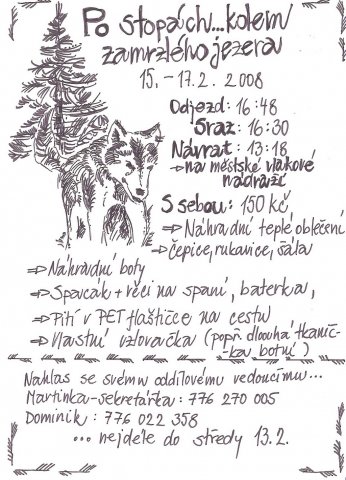 Po stopách...kolem
zamrzlého jezera
15.-17.2. 2008
Odjezd: 16:48
Sraz: 16:30
Návrat: 13:18
⇒na městské vlakové
nádraží
S sebou: 150 kč,
⇒Náhradní teplé oblečení
⇒čepice, rukavice, šála
⇒Náhradní boty
⇒Spacák + věci na spaní, baterka,
⇒Pití v PET flaštičce na cestu
⇒Vlastní uzlovačka (popř. dlouhá tkanič-
-ka botní)
Nahlas se svému oddílovému vedoucímu...
Martinka-sekretářka: 776 270 005
Dominik: 776 022 358
...nejdéle do středy 13.2.